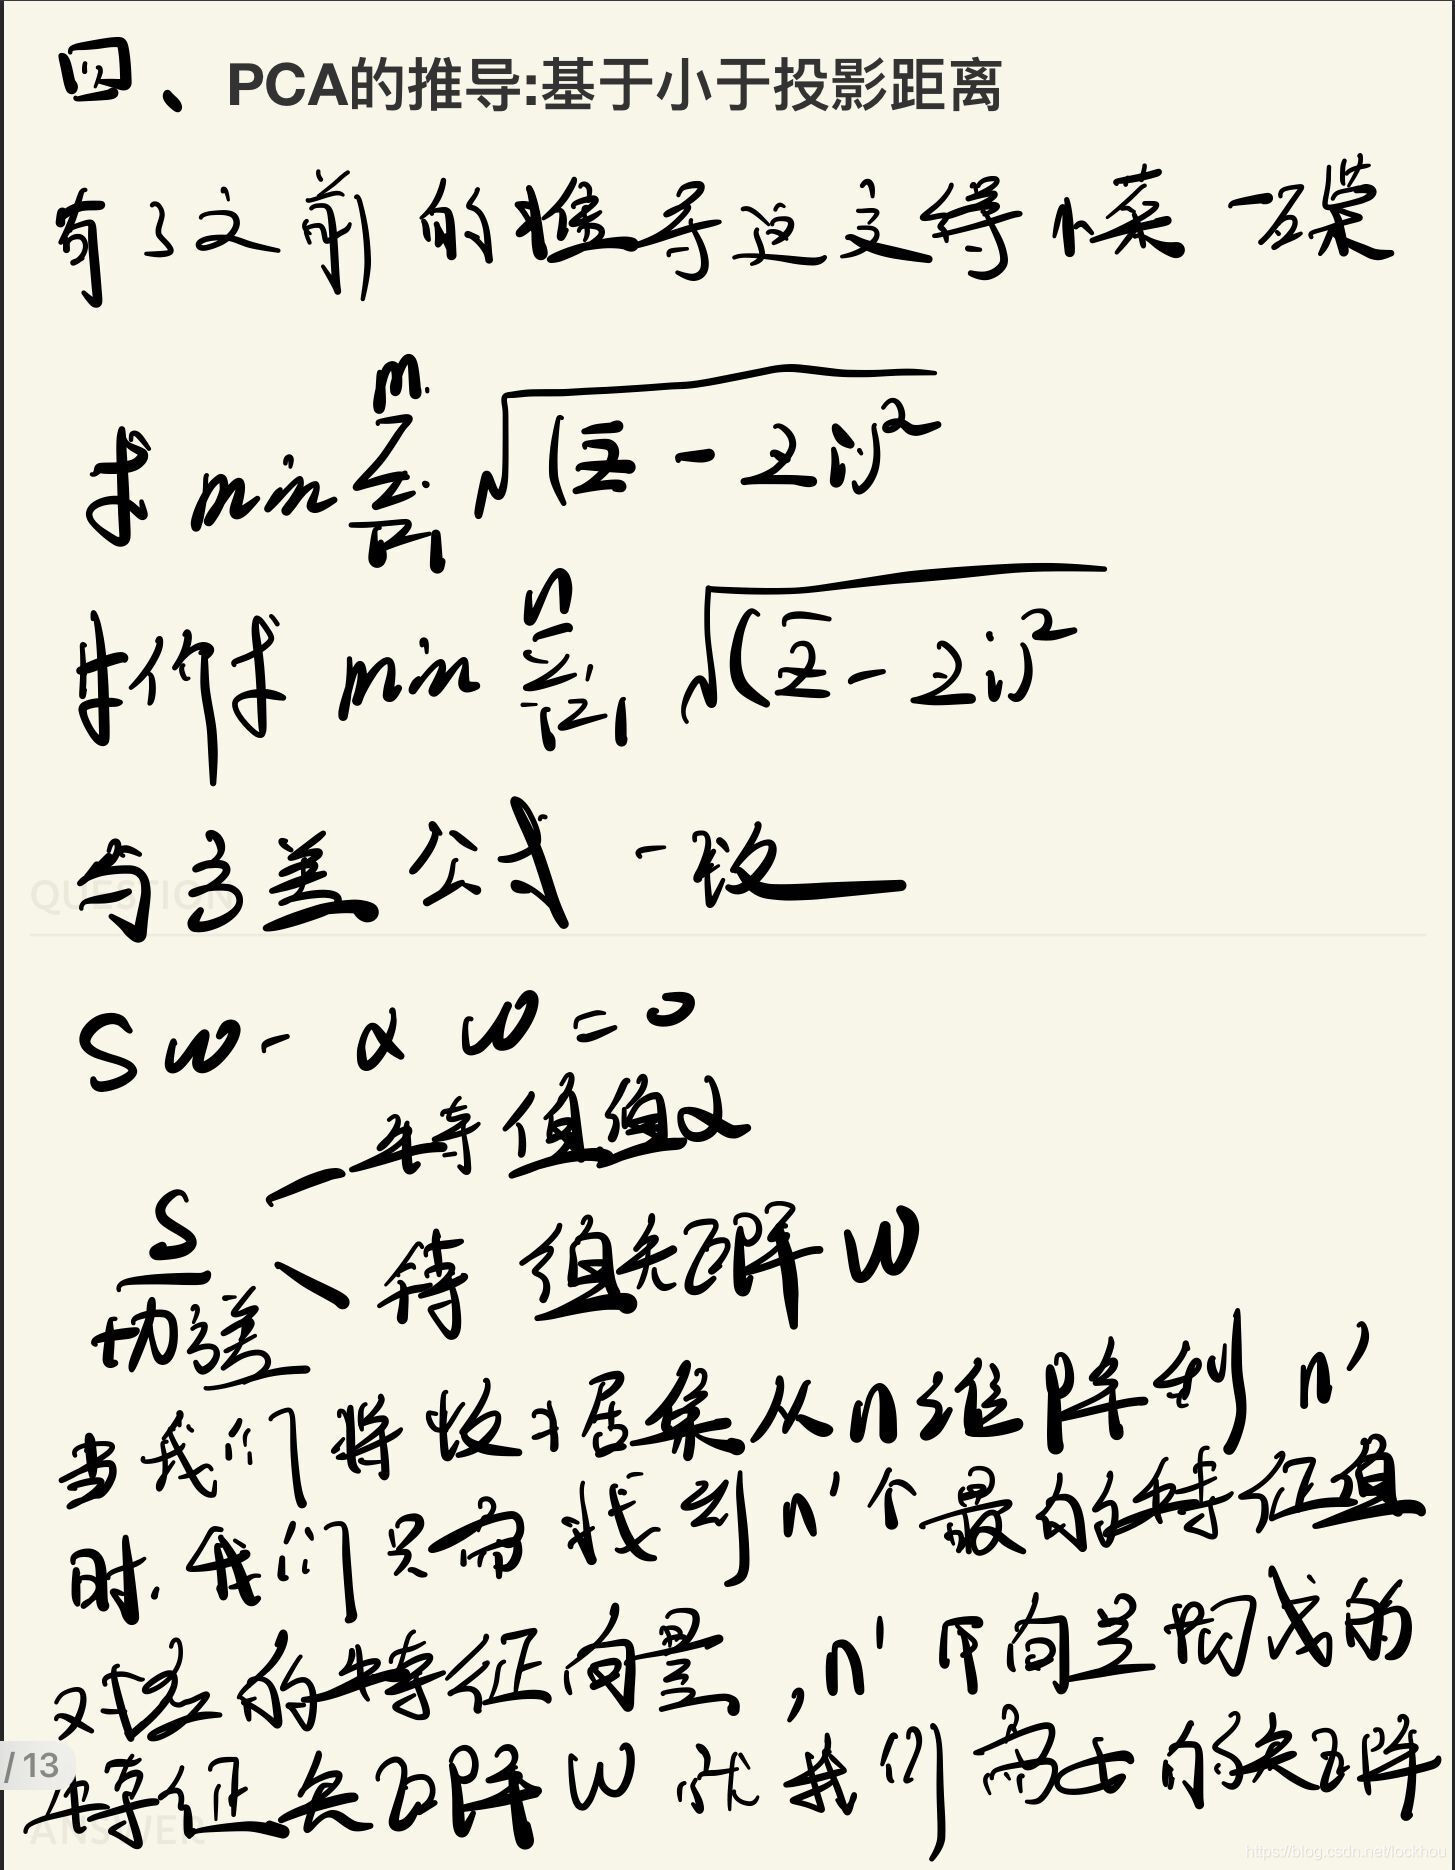 四、PCA的推导:基于小于投影距离
有了文前的推导这变得很菜一碟
求 min ∑_{i=1}^{m} √(z̄ - zi)²
求 min ∑_{i=1}^{n} √(z̄ - zi)²
与方差公式一致
QUESTION
Sw - αw = 0
特值值α
S
特 值矩阵 W
协方差
当我们将数据集从n维降到n'
时.我们只需找到n'个最的特征值
对应的特征向量,n'个向量构成的
/ 13
特征矩阵W 就我们需要的矩阵
ANSWER
https://blog.csdn.net/lockhou